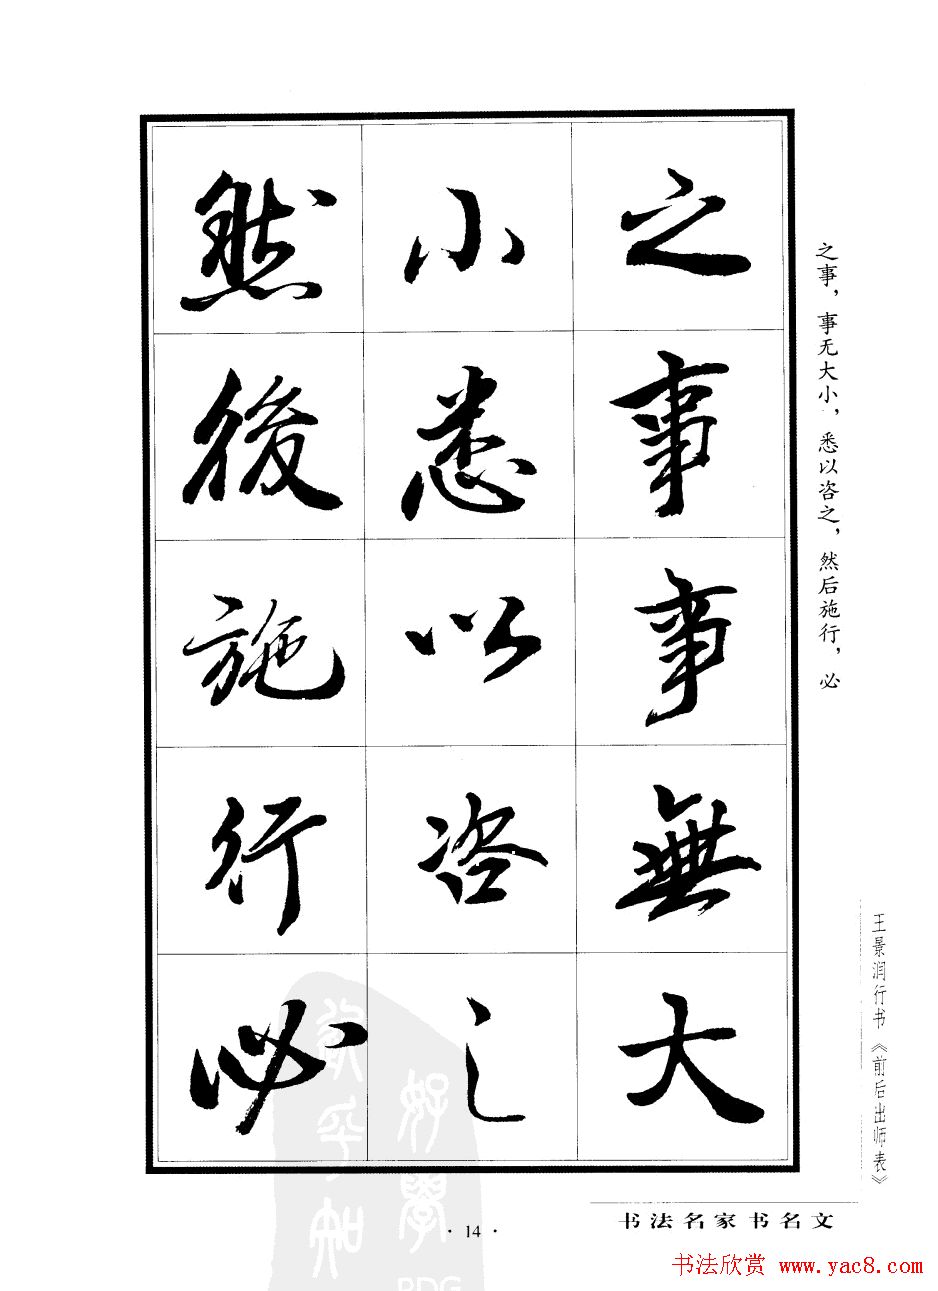 之事事無大
小悉以咨之
然後施行必
之事，事无大小，悉以咨之，然后施行，必
王景润行书《前后出师表》
书法名家书名文
· 14 ·
书法欣赏 www.yac8.com